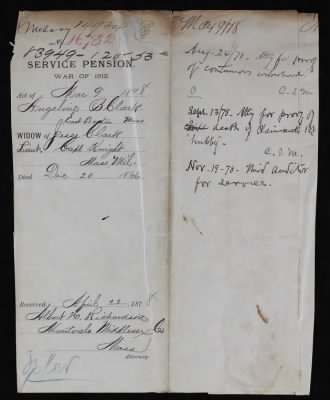 16,732
13949-120-53
SERVICE PENSION.
WAR OF 1812.
Act of Mar 9 1878
Angeline S. Clark
East Boston Mass
WIDOW of Jesse Clark
Lieut. Capt. Knight
Mass Mil.
Died Dec 20 1846
Received, April 22, 1878
Albert H. Richardson
Montvale Middlesex Co
Mass
Attorney.
May 9/78
Aug. 24/78 - Atty for proof
of continuous widowhood
C. C.S.M.
Sept. 13/78. Atty for proof of
death of Claimants
"hubby".
C.S.M.
Nov. 19-78. Third auditor
for service.